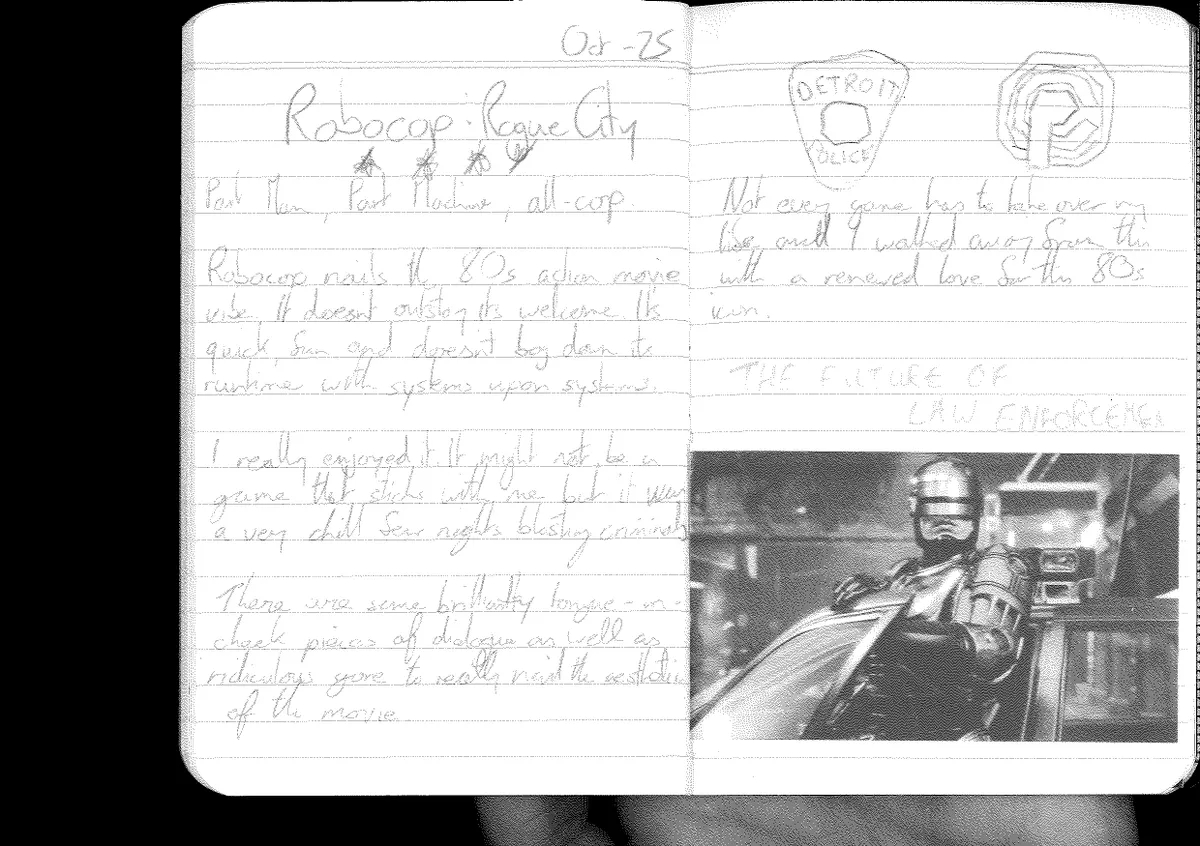 Oct -25
Robocop: Rogue City
Part Man, Part Machine, all-cop.
Robocop nails the 80s action movie
vibe. It doesnt outstay its welcome. Its
quick, fun and doesnt bog down its
runtime with systems upon systems.
I really enjoyed it. It might not be a
game that sticks with me but it was
a very chill few nights blasting criminals
There are some brilliantly tongue-in-
cheek pieces of dialogue as well as
ridiculous gore to really nail the aesthetic
of the movie.
DETROIT
POLICE
Not every game has to take over my
life and I walked away from this
with a renewed love for this 80s
icon.
THE FUTURE OF
LAW ENFORCEMEN